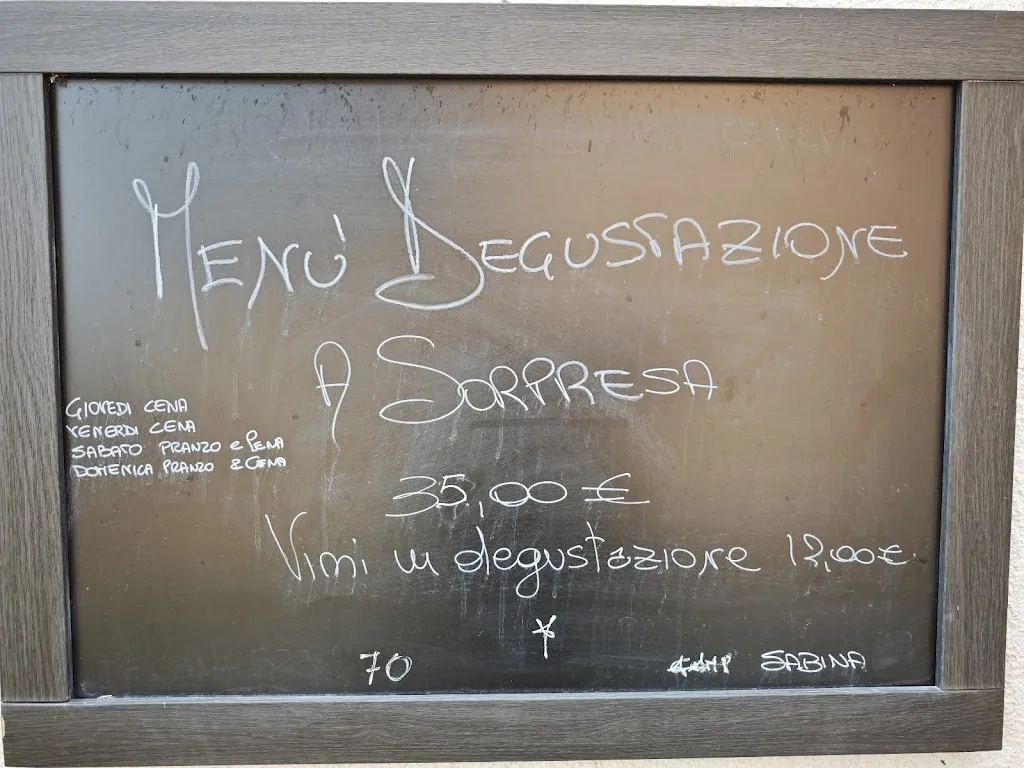 Menù Degustazione
a Sorpresa
GIOVEDI CENA
VENERDI CENA
SABATO PRANZO e CENA
DOMENICA PRANZO e CENA
35,00 €
Vini in degustazione 12,00€
70
SABINA